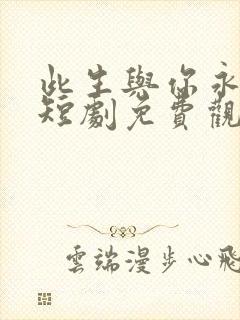 此生與你永
短劇免費觀
雲端漫步心飛